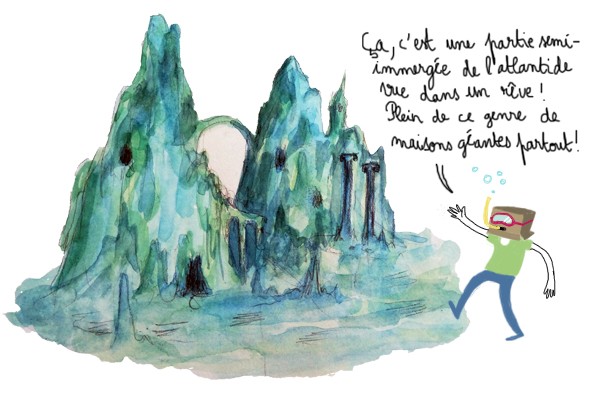 Ça, c'est une partie semi-
immergée de l'atlantide
vue dans un rêve!
Plein de ce genre de
maisons géantes partout!